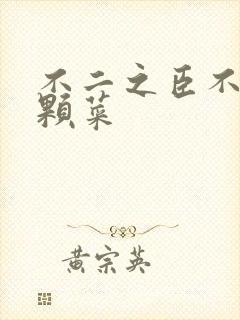 不二之臣不
顆菜
黄宗英